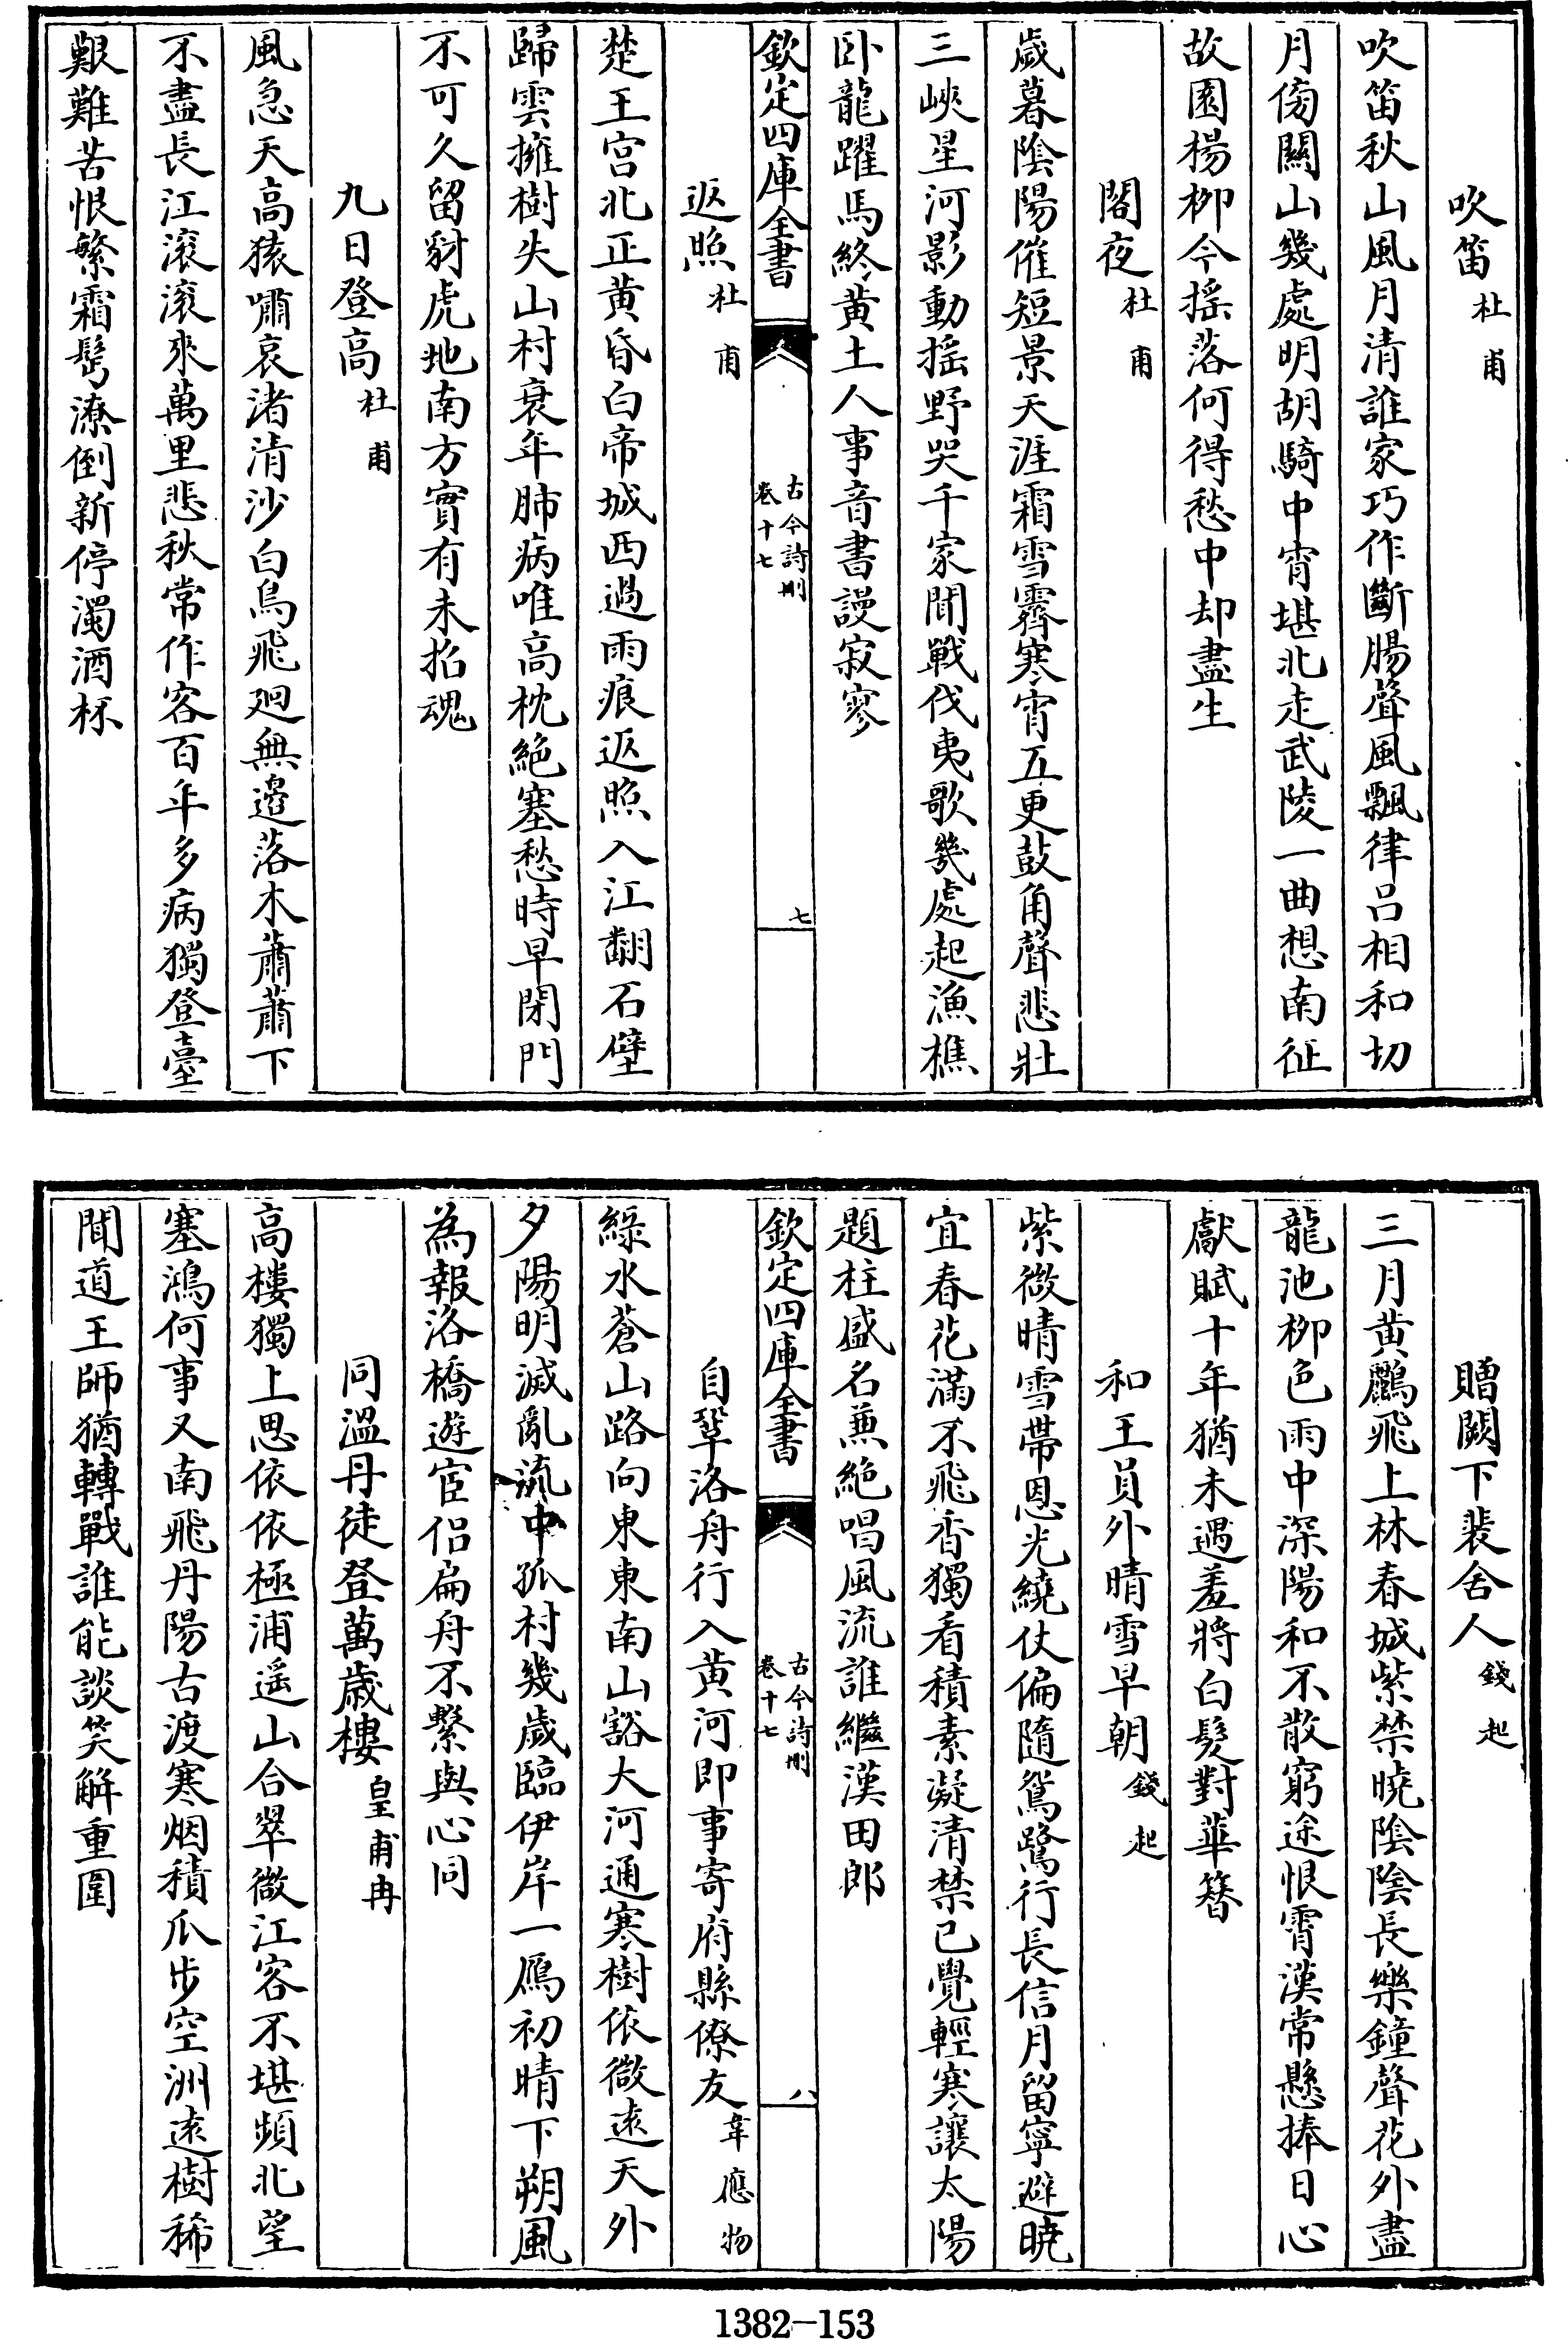 吹笛杜甫
吹笛秋山風月清誰家巧作斷腸聲風飄律吕相和切
月傍關山幾處明胡騎中宵堪北走武陵一曲想南征
故園楊栁今揺落何得愁中却盡生
閣夜杜甫
歲暮陰陽催短景天涯霜雪霽寒宵五更鼓角聲悲壯
三峽星河影動揺野哭千家聞戰伐夷歌幾處起漁樵
卧龍躍馬終黄土人事音書謾寂寥
欽定四庫全書
古今詩刪
卷十七
七
返照杜甫
楚王宫北正黄昏白帝城西過雨痕返照入江翻石壁
歸雲擁樹失山村衰年肺病唯高枕絶塞愁時早閉門
不可久留豺虎地南方實有未招魂
九日登高杜甫
風急天高猿嘯哀渚清沙白鳥飛廻無邉落木蕭蕭下
不盡長江滚滚來萬里悲秋常作客百年多病獨登臺
艱難苦恨繁霜鬢潦倒新停濁酒杯
贈闕下裴舍人錢起
三月黄鸝飛上林春城紫禁曉陰陰長樂鐘聲花外盡
龍池栁色雨中深陽和不散窮途恨霄漢常懸捧日心
獻賦十年猶未遇羞將白髮對華簪
和王員外晴雪早朝錢起
紫微晴雪帶恩光繞仗偏隨鴛鷺行長信月留寧避曉
宜春花滿不飛香獨看積素凝清禁已覺輕寒讓太陽
題柱盛名兼絶唱風流誰繼漢田郎
欽定四庫全書
古今詩刪
卷十七
八
自鞏洛舟行入黄河即事寄府縣僚友韋應物
綠水蒼山路向東東南山豁大河通寒樹依微逺天外
夕陽明滅亂流中孤村幾歲臨伊岸一鴈初晴下朔風
為報洛橋遊宦侣扁舟不繫與心同
同溫丹徒登萬歲樓皇甫冉
高樓獨上思依依極浦遥山合翠微江客不堪頻北望
塞鴻何事又南飛丹陽古渡寒烟積瓜步空洲逺樹稀
聞道王師猶轉戰誰能談笑解重圍
1382-153